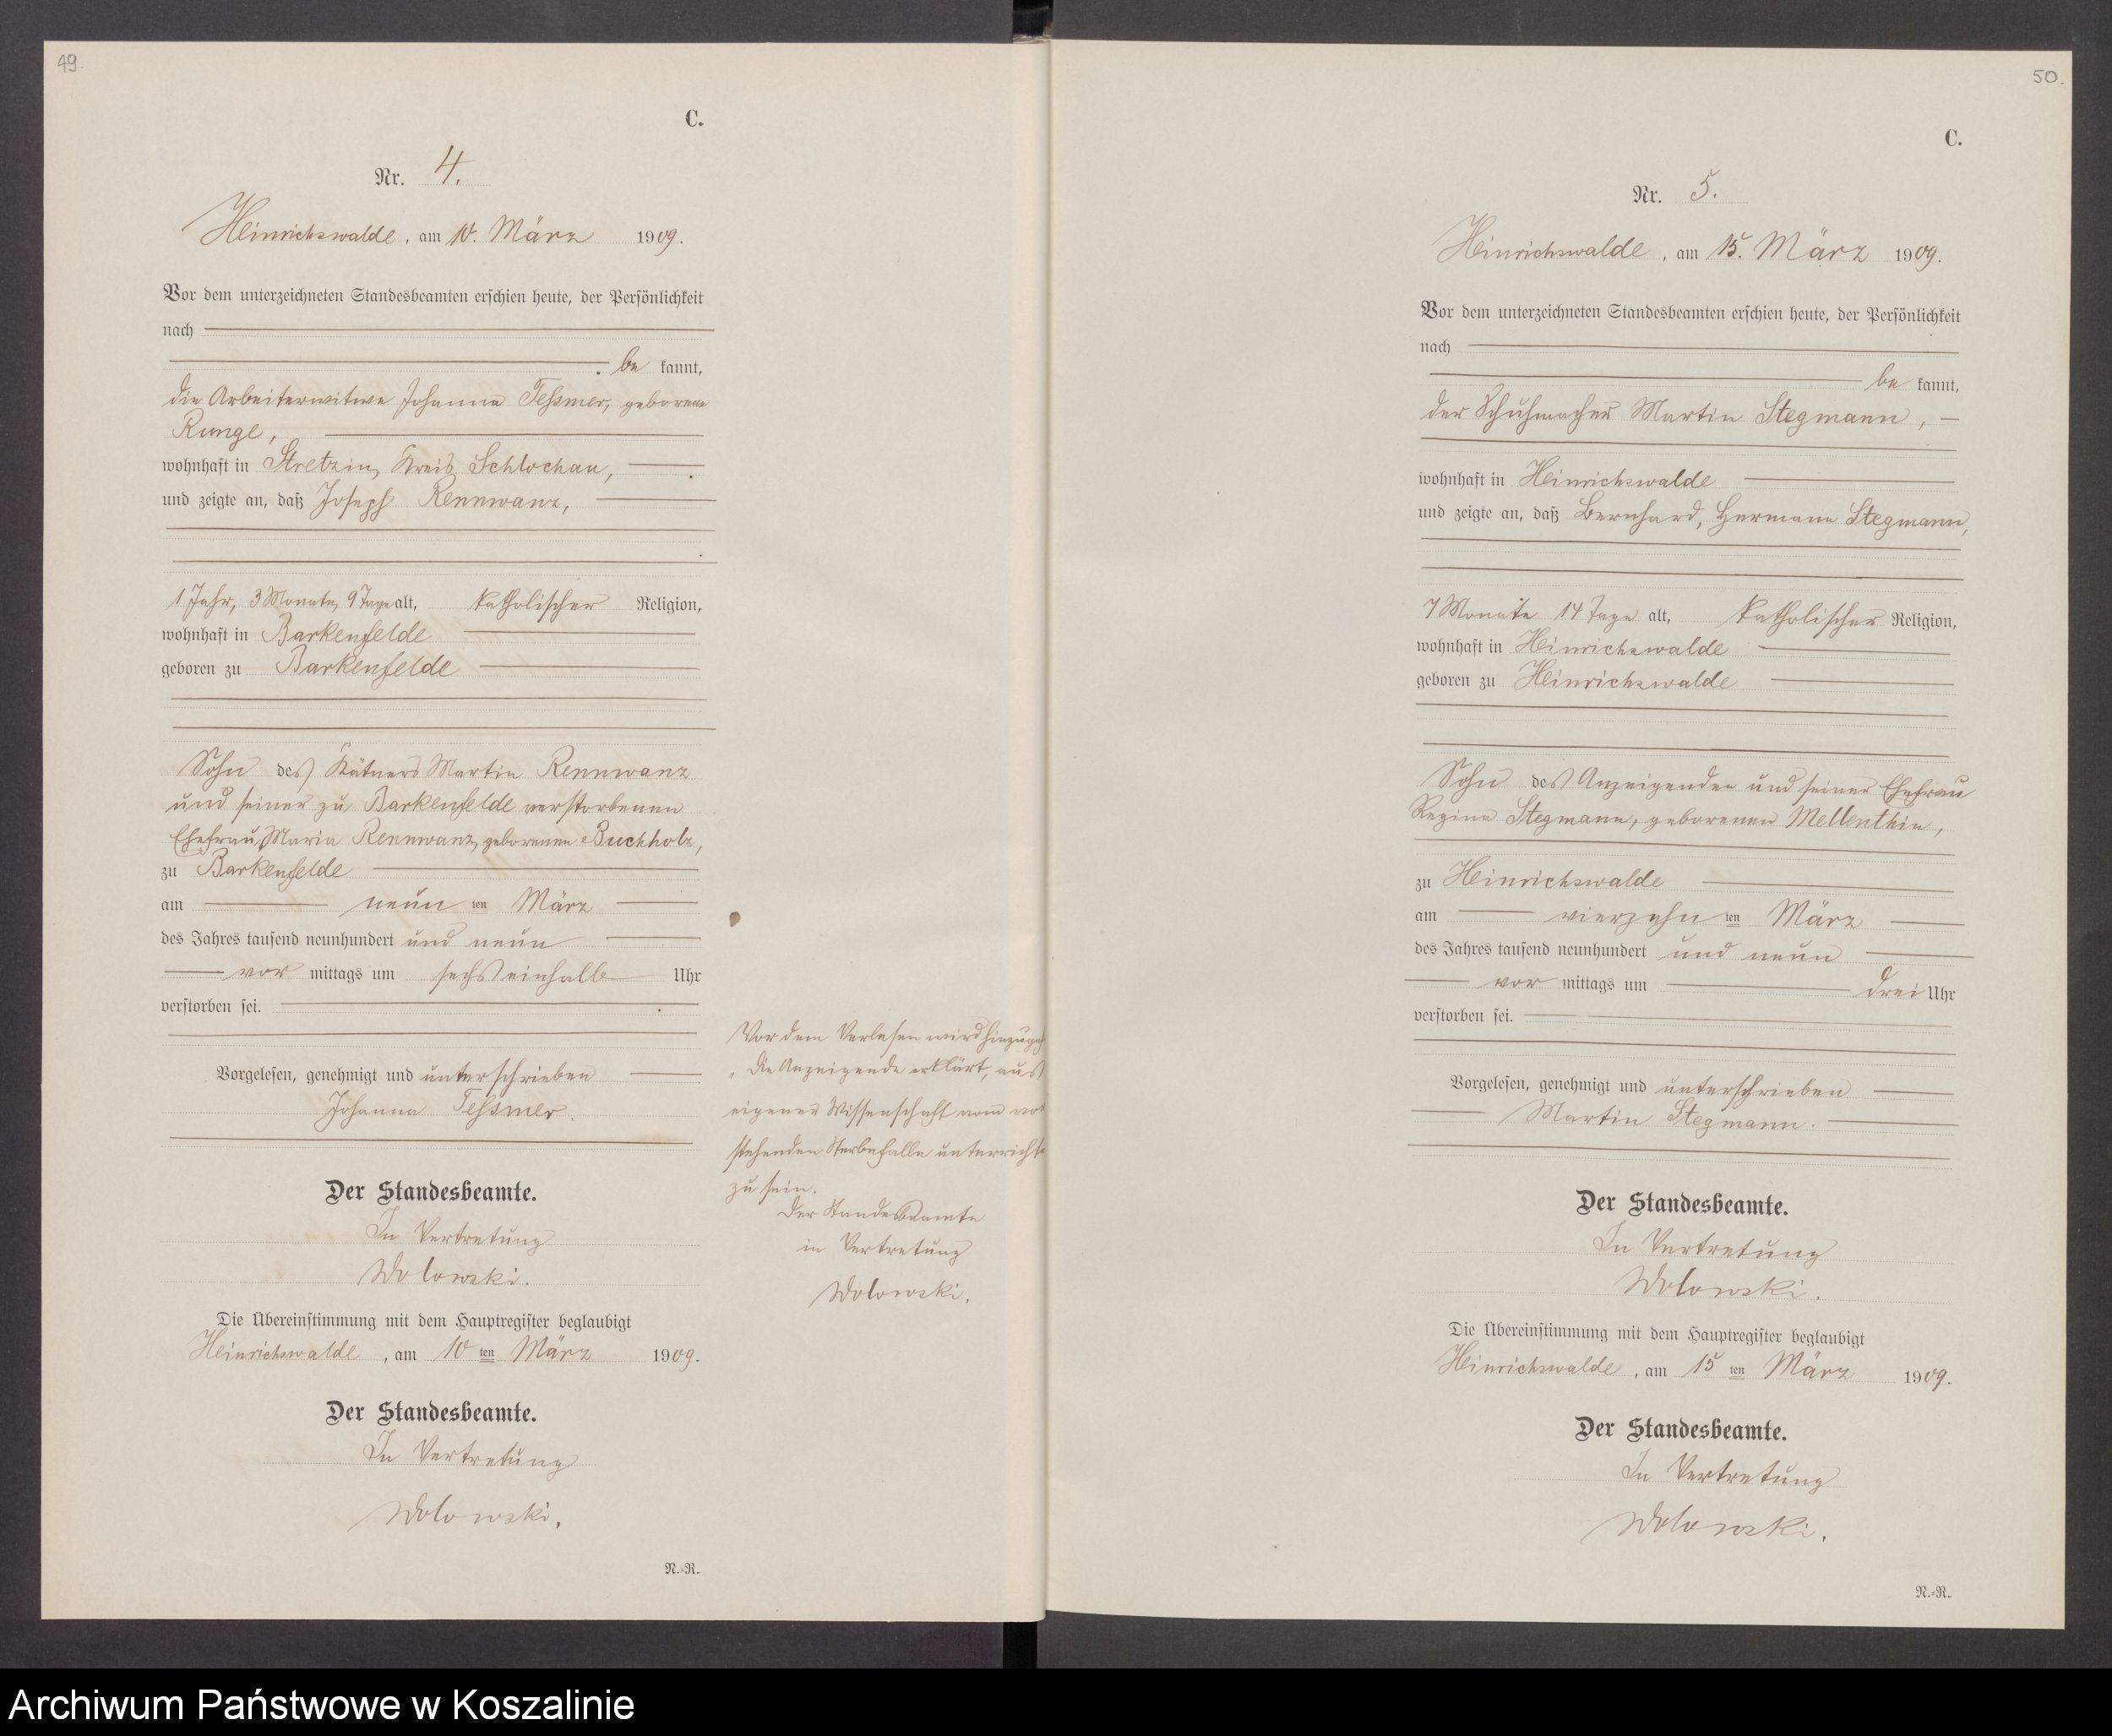 49.
C.
Nr. 4.
Heinrichswalde, am 10. März 1909.
Vor dem unterzeichneten Standesbeamten erschien heute, der Persönlichkeit
nach
be kannt,
die Arbeiterwitwe Johanna Teßmer, geborene
Runge,
wohnhaft in Stretzin, Kreis Schlochau,
und zeigte an, daß Joseph Rennwanz,
1 Jahr, 3 Monate, 9 Tage alt, katholischer Religion,
wohnhaft in Barkenfelde
geboren zu Barkenfelde
Sohn des Kätners Martin Rennwanz
und seiner zu Barkenfelde verstorbenen
Ehefrau, Maria Rennwanz, geborenen Buchholz,
zu Barkenfelde
am neun ten März
des Jahres tausend neunhundert und neun
vor mittags um sechs einhalb Uhr
verstorben sei.
Vorgelesen, genehmigt und unterschrieben
Johanna Teßmer.
Der Standesbeamte.
In Vertretung
Wolowski.
Die Übereinstimmung mit dem Hauptregister beglaubigt
Heinrichswalde, am 10 ten März 1909.
Der Standesbeamte.
In Vertretung
Wolowski.
N.-R.
Vor dem Verlesen wird
Die Anzeigende erklärt, aus
eigener Wissenschaft vom
stehenden Sterbefalle
zu sein.
Der Standesbeamte
in Vertretung
Wolowski.
50.
C.
Nr. 5.
Heinrichswalde, am 15. März 1909.
Vor dem unterzeichneten Standesbeamten erschien heute, der Persönlichkeit
nach
be kannt,
der Schuhmacher Martin Stegmann,
wohnhaft in Heinrichswalde
und zeigte an, daß Bernhard, Hermann Stegmann,
7 Monate 14 Tage alt, katholischer Religion,
wohnhaft in Heinrichswalde
geboren zu Heinrichswalde
Sohn des Anzeigenden und seiner Ehefrau
Regina Stegmann, geborenen Mellenthin,
zu Heinrichswalde
am vierzehn ten März
des Jahres tausend neunhundert und neun
vor mittags um drei Uhr
verstorben sei.
Vorgelesen, genehmigt und unterschrieben
Martin Stegmann.
Der Standesbeamte.
In Vertretung
Wolowski.
Die Übereinstimmung mit dem Hauptregister beglaubigt
Heinrichswalde, am 15 ten März 1909.
Der Standesbeamte.
In Vertretung
Wolowski.
N.-R.
Archiwum Państwowe w Koszalinie